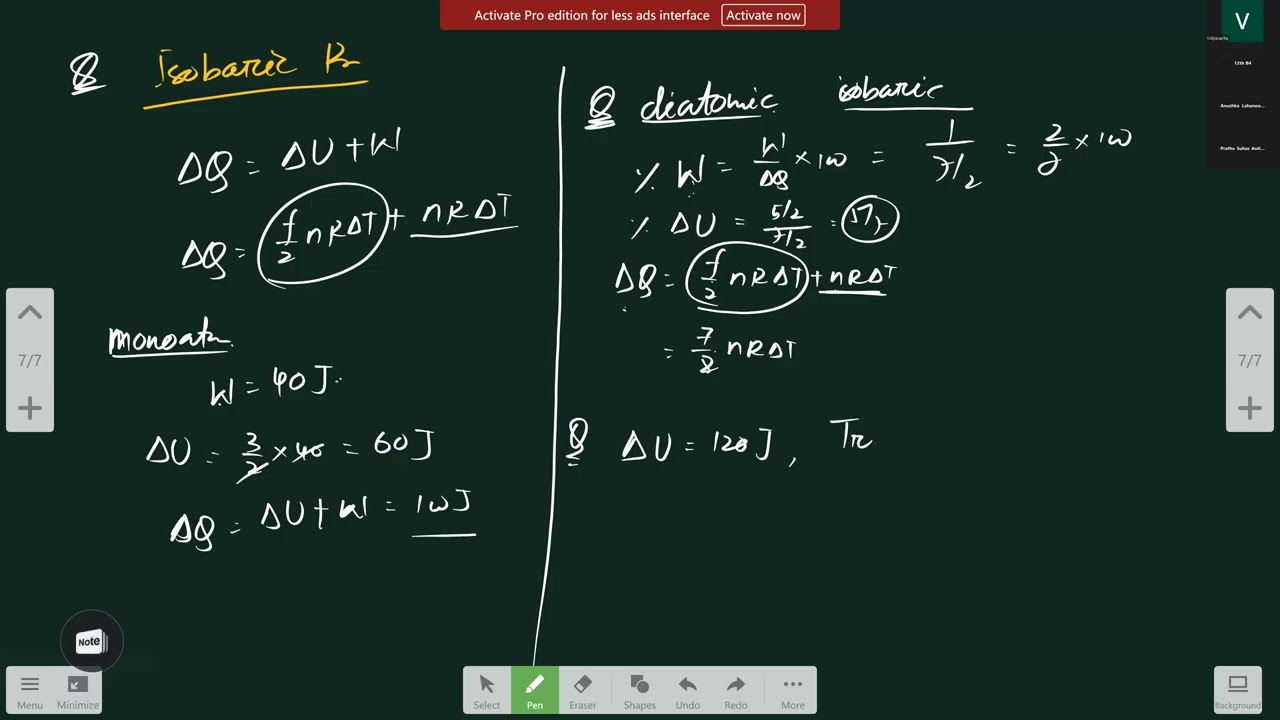 Activate Pro edition for less ads interface Activate now
V
Vidyasarita
12th B4
Anushka Lahanoo...
Pratha Suhas Auti...
Q Isobaric Pr
ΔQ = ΔU + W
ΔQ = f/2 nRΔT + nRΔT
monoatm.
W = 40J
ΔU = 3/2 × 40 = 60J
ΔQ = ΔU + W = 100J
Q diatomic isobaric
% W = W/ΔQ × 100 = 1/7/2 = 2/7 × 100
% ΔU = 5/2/7/2 = 5/7
ΔQ = f/2 nRΔT + nRΔT
= 7/2 nRΔT
Q ΔU = 120J, Tr
7/7
7/7
Note
Menu Minimize Select Pen Eraser Shapes Undo Redo More Background